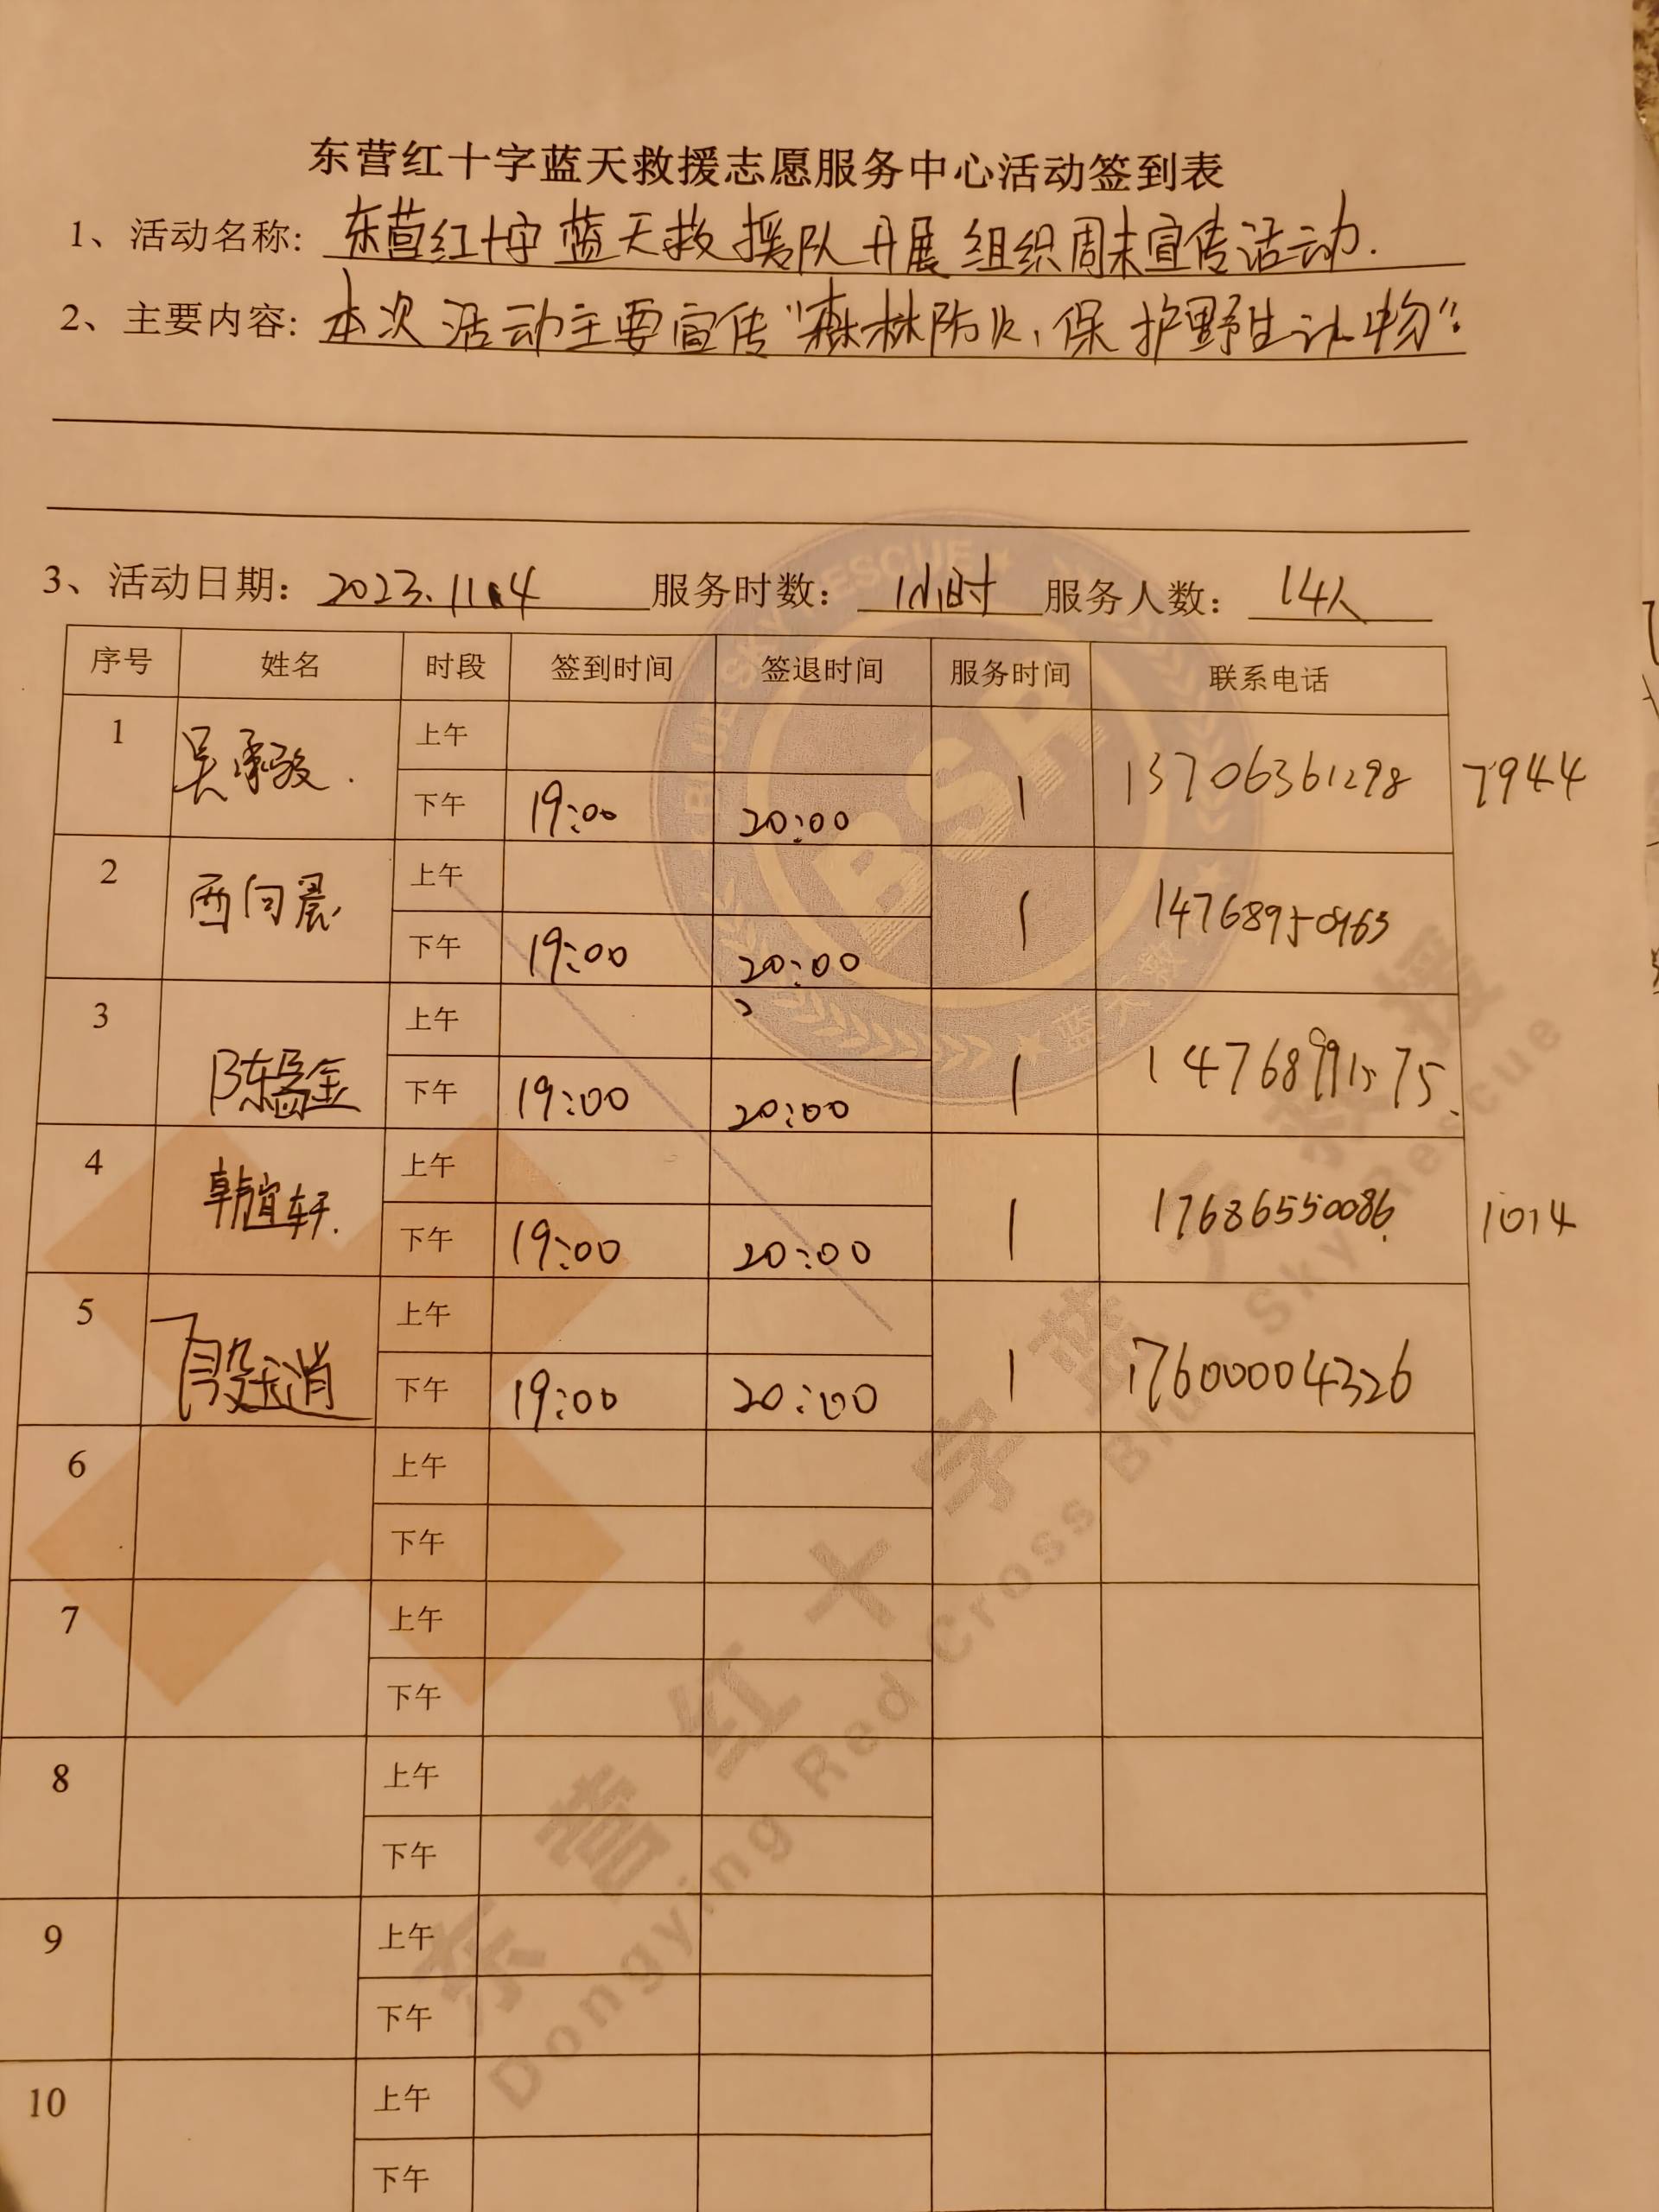 东营红十字蓝天救援志愿服务中心活动签到表
1、活动名称: 东营红十字蓝天救援队开展组织周末宣传活动.
2、主要内容: 本次活动主要宣传“森林防火、保护野生动物”.
3、活动日期: 2023.11.4 服务时数: 1小时 服务人数: 14人
序号 姓名 时段 签到时间 签退时间 服务时间 联系电话
1 吴承骏. 上午
下午 19:00 20:00 1 13706361298 7944
2 西向晨 上午
下午 19:00 20:00 1
3 上午
下午 19:00 20:00 1
4 韩宜轩. 上午
下午 19:00 20:00 1 17686550086 1014
5 上午
下午 19:00 20:00 1 17600004326
6 上午
下午
7 上午
下午
8 上午
下午
9 上午
下午
10 上午
下午
BLUE SKY RESCUE
BSR
蓝天救援
东营红十字蓝天救援
Dongying Red Cross Blue Sky Rescue